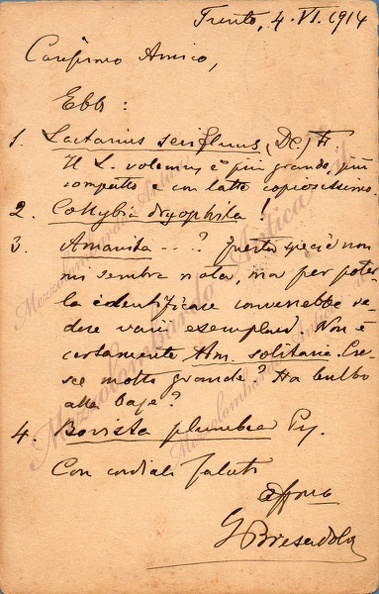 Trento, 4. VI. 1914
Carissimo Amico,
Ebbi:
1. Lactarius serifluus, (DC.) Fr.
Il L. volemus è più grande, più
compatto e con latte copiosissimo.
2. Collybia dryophila!
3. Amanita ---? Questa specie non
mi sembra nota, ma per poter-
la identificare converrebbe ve-
dere varii esemplari. Non è
certamente Am. solitaria. Cre-
sce molto grande? Ha bulbo
alla base?
4. Bovista plumbea Py.
Con cordiali saluti
affmo
G Bresadola
Mezzolombardo Antica